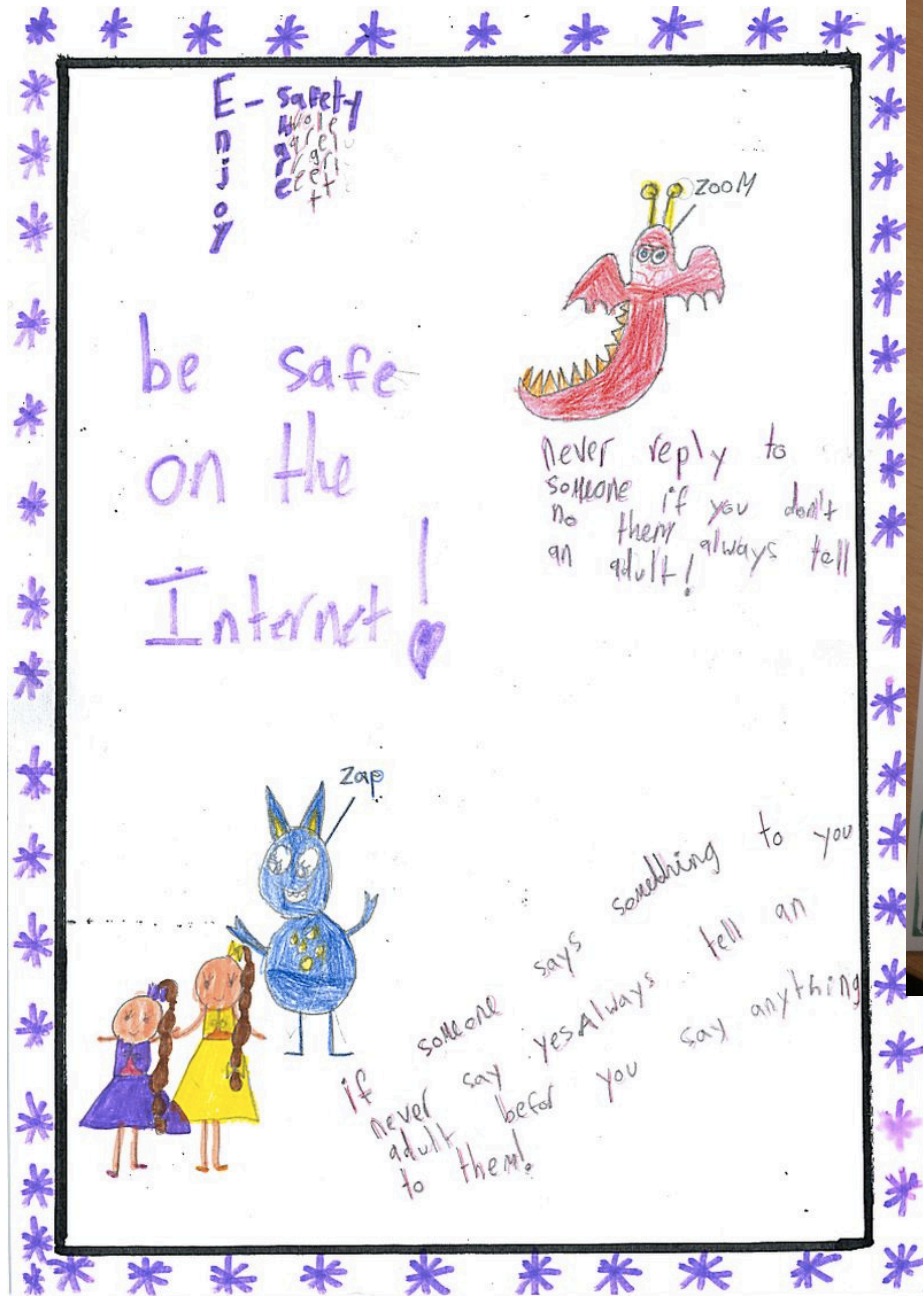 E - safety
Enjoy
ZOOM
be safe
on the
Internet!
never reply to
someone if you don't
no them always tell
an adult!
zap
if someone says something to you
never say yes Always tell an
adult befor you say anything
to them!